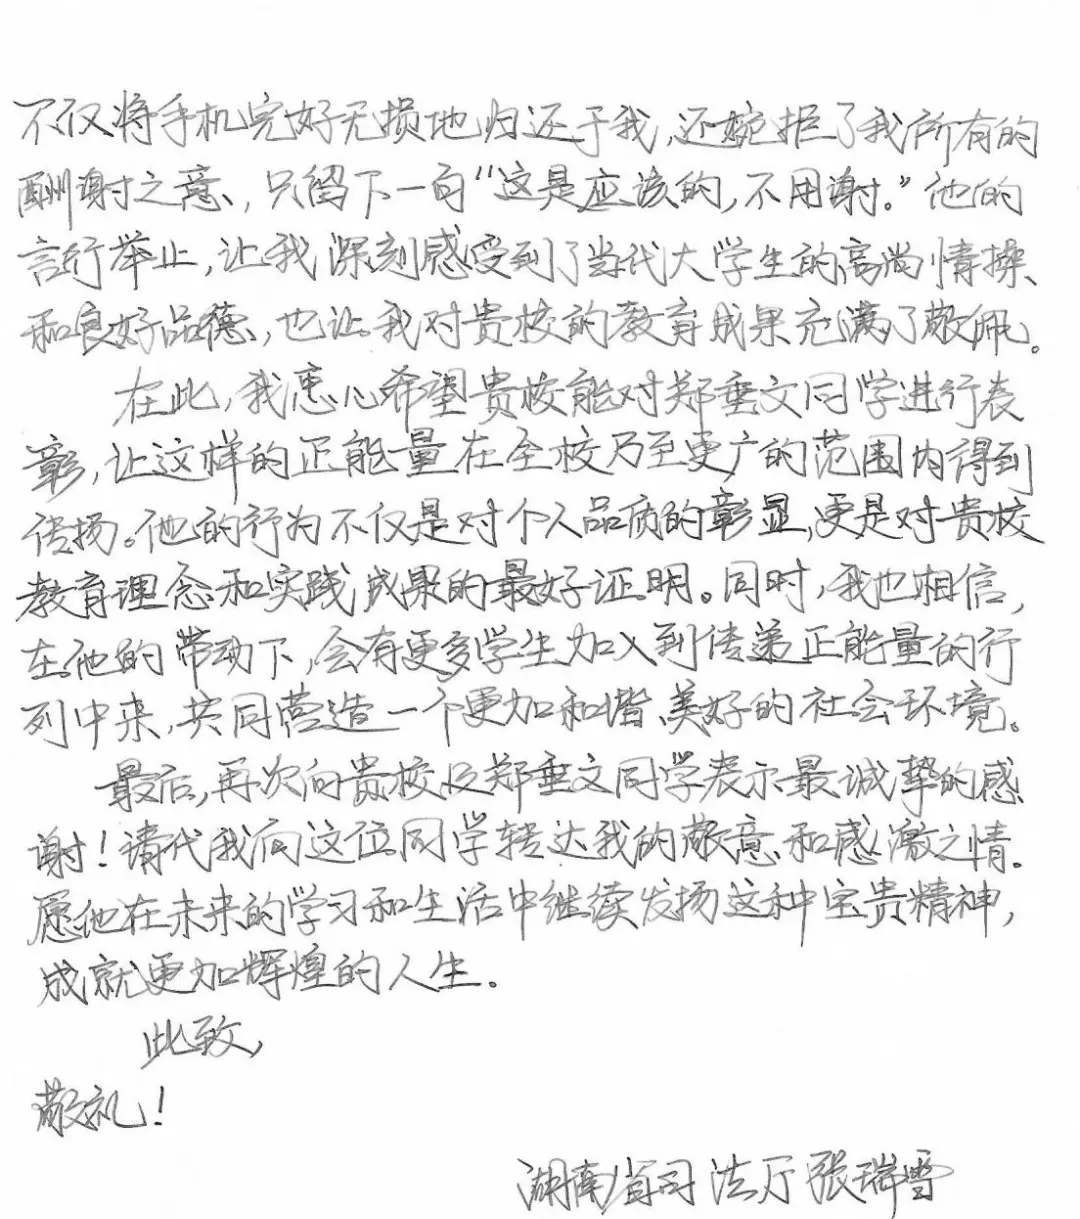 不仅将手机完好无损地归还于我,还婉拒了我所有的
酬谢之意,只留下一句“这是应该的,不用谢。”他的
言行举止,让我深刻感受到了当代大学生的高尚情操
和良好品德,也让我对贵校的教育成果充满了敬佩。
在此,我衷心希望贵校能对郑垂文同学进行表
彰,让这样的正能量在全校乃至更广的范围内得到
传扬。他的行为不仅是对个人品质的彰显,更是对贵校
教育理念和实践成果的最好证明。同时,我也相信,
在他的带动下,会有更多学生加入到传递正能量的行
列中来,共同营造一个更加和谐、美好的社会环境。
最后,再次向贵校及郑垂文同学表示最诚挚的感
谢!请代我向这位同学转达我的敬意和感激之情.
愿他在未来的学习和生活中继续发扬这种宝贵精神,
成就更加辉煌的人生。
此致,
敬礼!
湖南省司法厅 张瑞雪